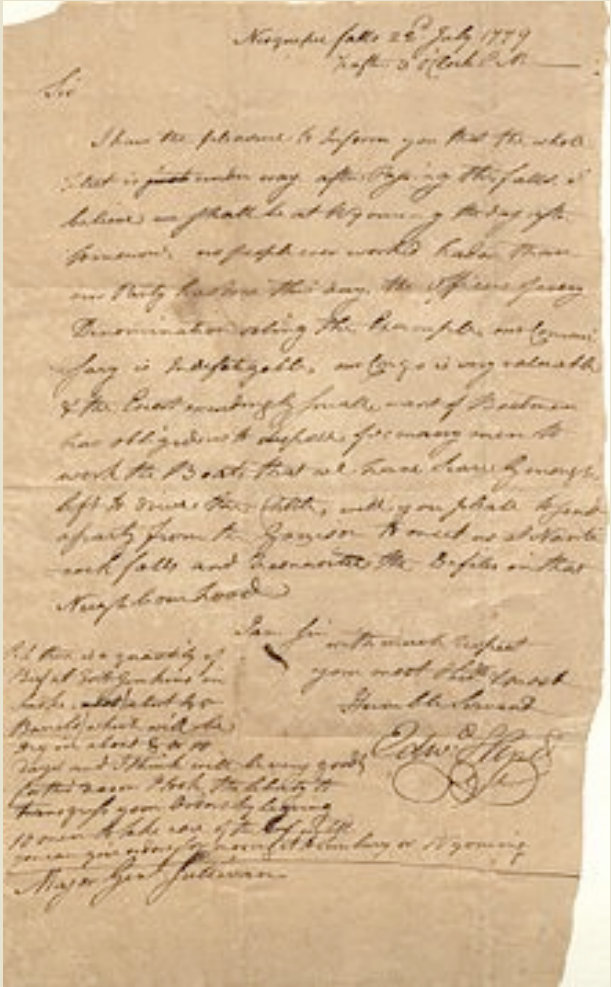 falls 22d July 1779
3 oClock P.M.
Sir
I have the pleasure to Inform you that the whole
Fleet is just under way after Passing the falls. I
believe we shall be at Wyoming the day after
tomorrow. no people ever worked harder than
our Party has done this day, the officers of every
Denomination seting the Example, our Commi
sary is Indefatigable, our Cargo is very valuable
& the Escort exceedingly small, want of Boatmen
has obliged us to dispose of so many men to
work the Boats that we have scarcely enough
left to drive the Cattle, will you please to send
a party from the Garrison to meet us at Nante
cock falls and reconnoitre the Defiles in that
Neighbourhood
I am Sir with much respect
your most Obt. & most
Humble Servant
Edwd Hand
P.S. there is a quantity of
Beef at Fort Jenkins in
about
Barrels which will be
dry in about 8 or 10
days and I think will be very good
I took the liberty to
transgress your Orders by leaving
10 men to take care of the
you can give at Sunbury or Wyoming
Major Genl. Sullivan